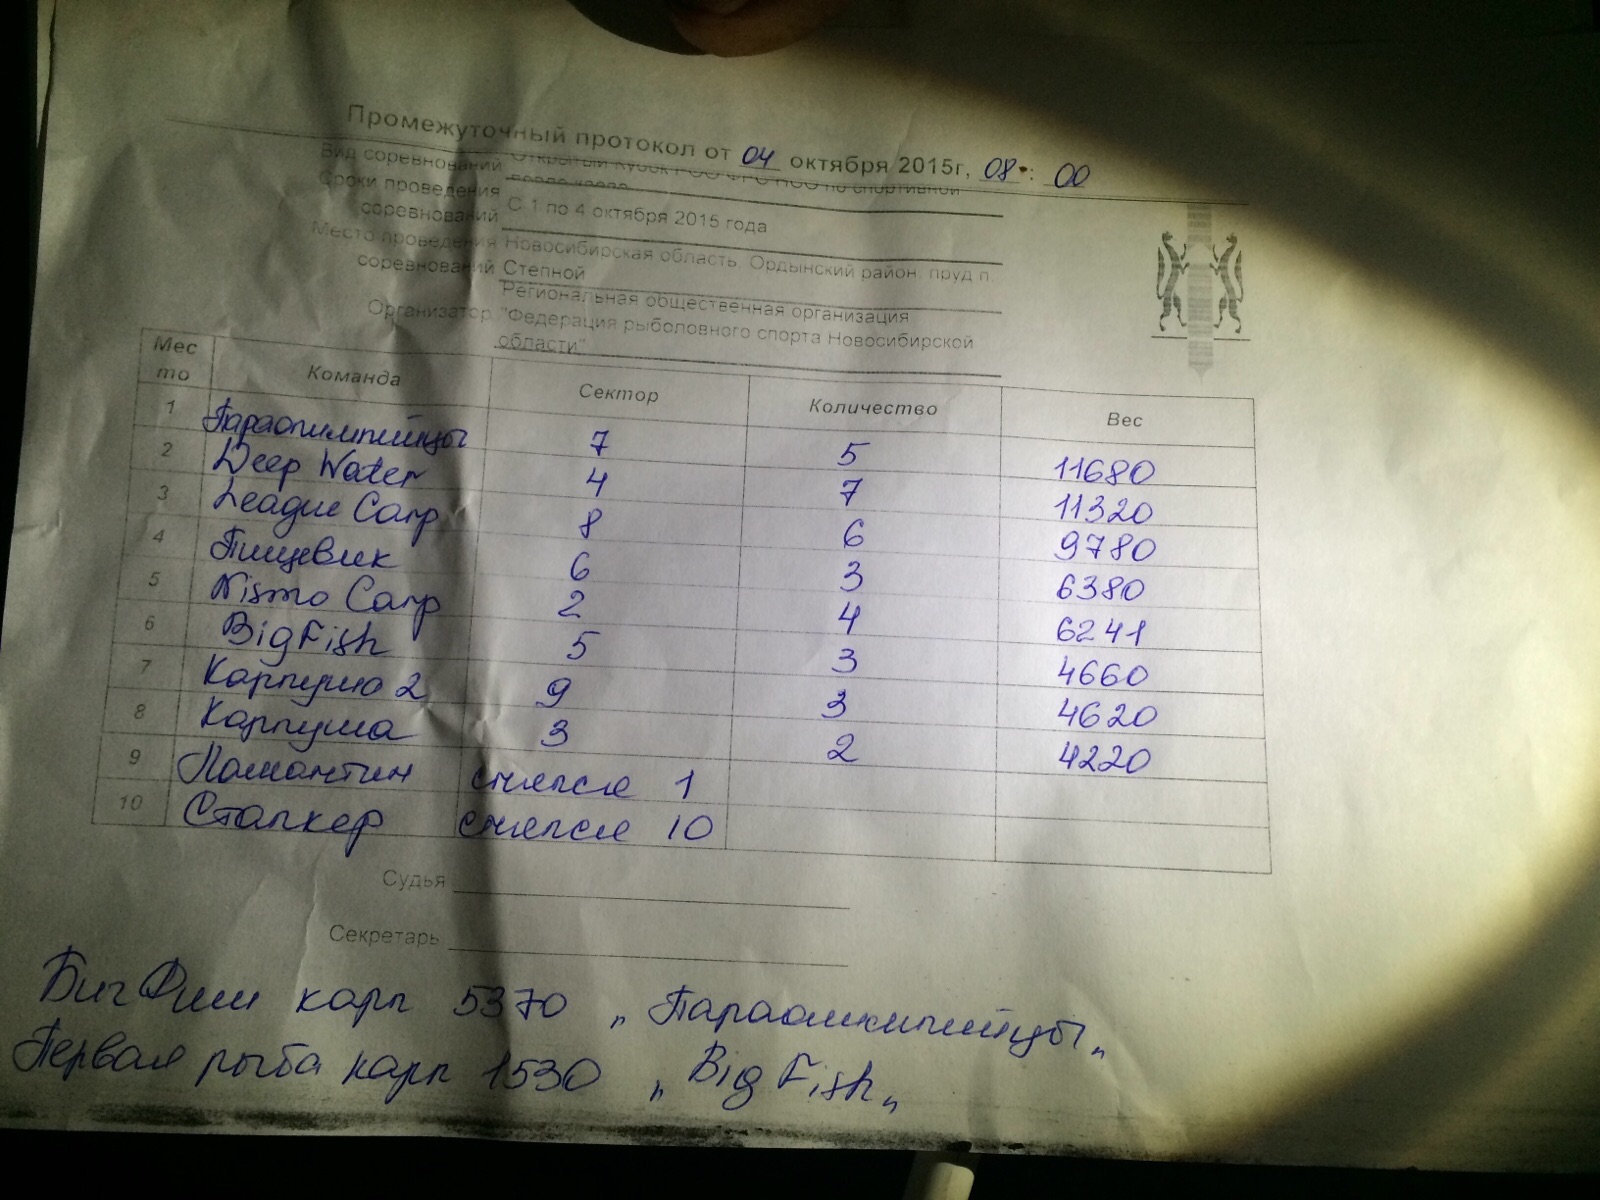 Промежуточный протокол от 04 октября 2015г, 08 : 00
Вид соревнований Открытый Кубок РОО ФРС НСО по спортивной
ловле карпа
Сроки проведения
соревнований С 1 по 4 октября 2015 года
Место проведения Новосибирская область, Ордынский район, пруд п.
соревнований Степной
Региональная общественная организация
Организатор "Федерация рыболовного спорта Новосибирской
области"
Место Команда Сектор Количество Вес
1 Параолимпийцы 7 5 11680
2 Deep Water 4 7 11320
3 League Carp 8 6 9780
4 Пищевик 6 3 6380
5 Nismo Carp 2 4 6241
6 BigFish 5 3 4660
7 Карпуша 2 9 3 4620
8 Карпуша 3 2 4220
9 Ламантин снялся 1
10 Сталкер снялся 10
Судья
Секретарь
Биг Фиш карп 5370 „Параолимпийцы„
Первая рыба карп 1530 „Big Fish„